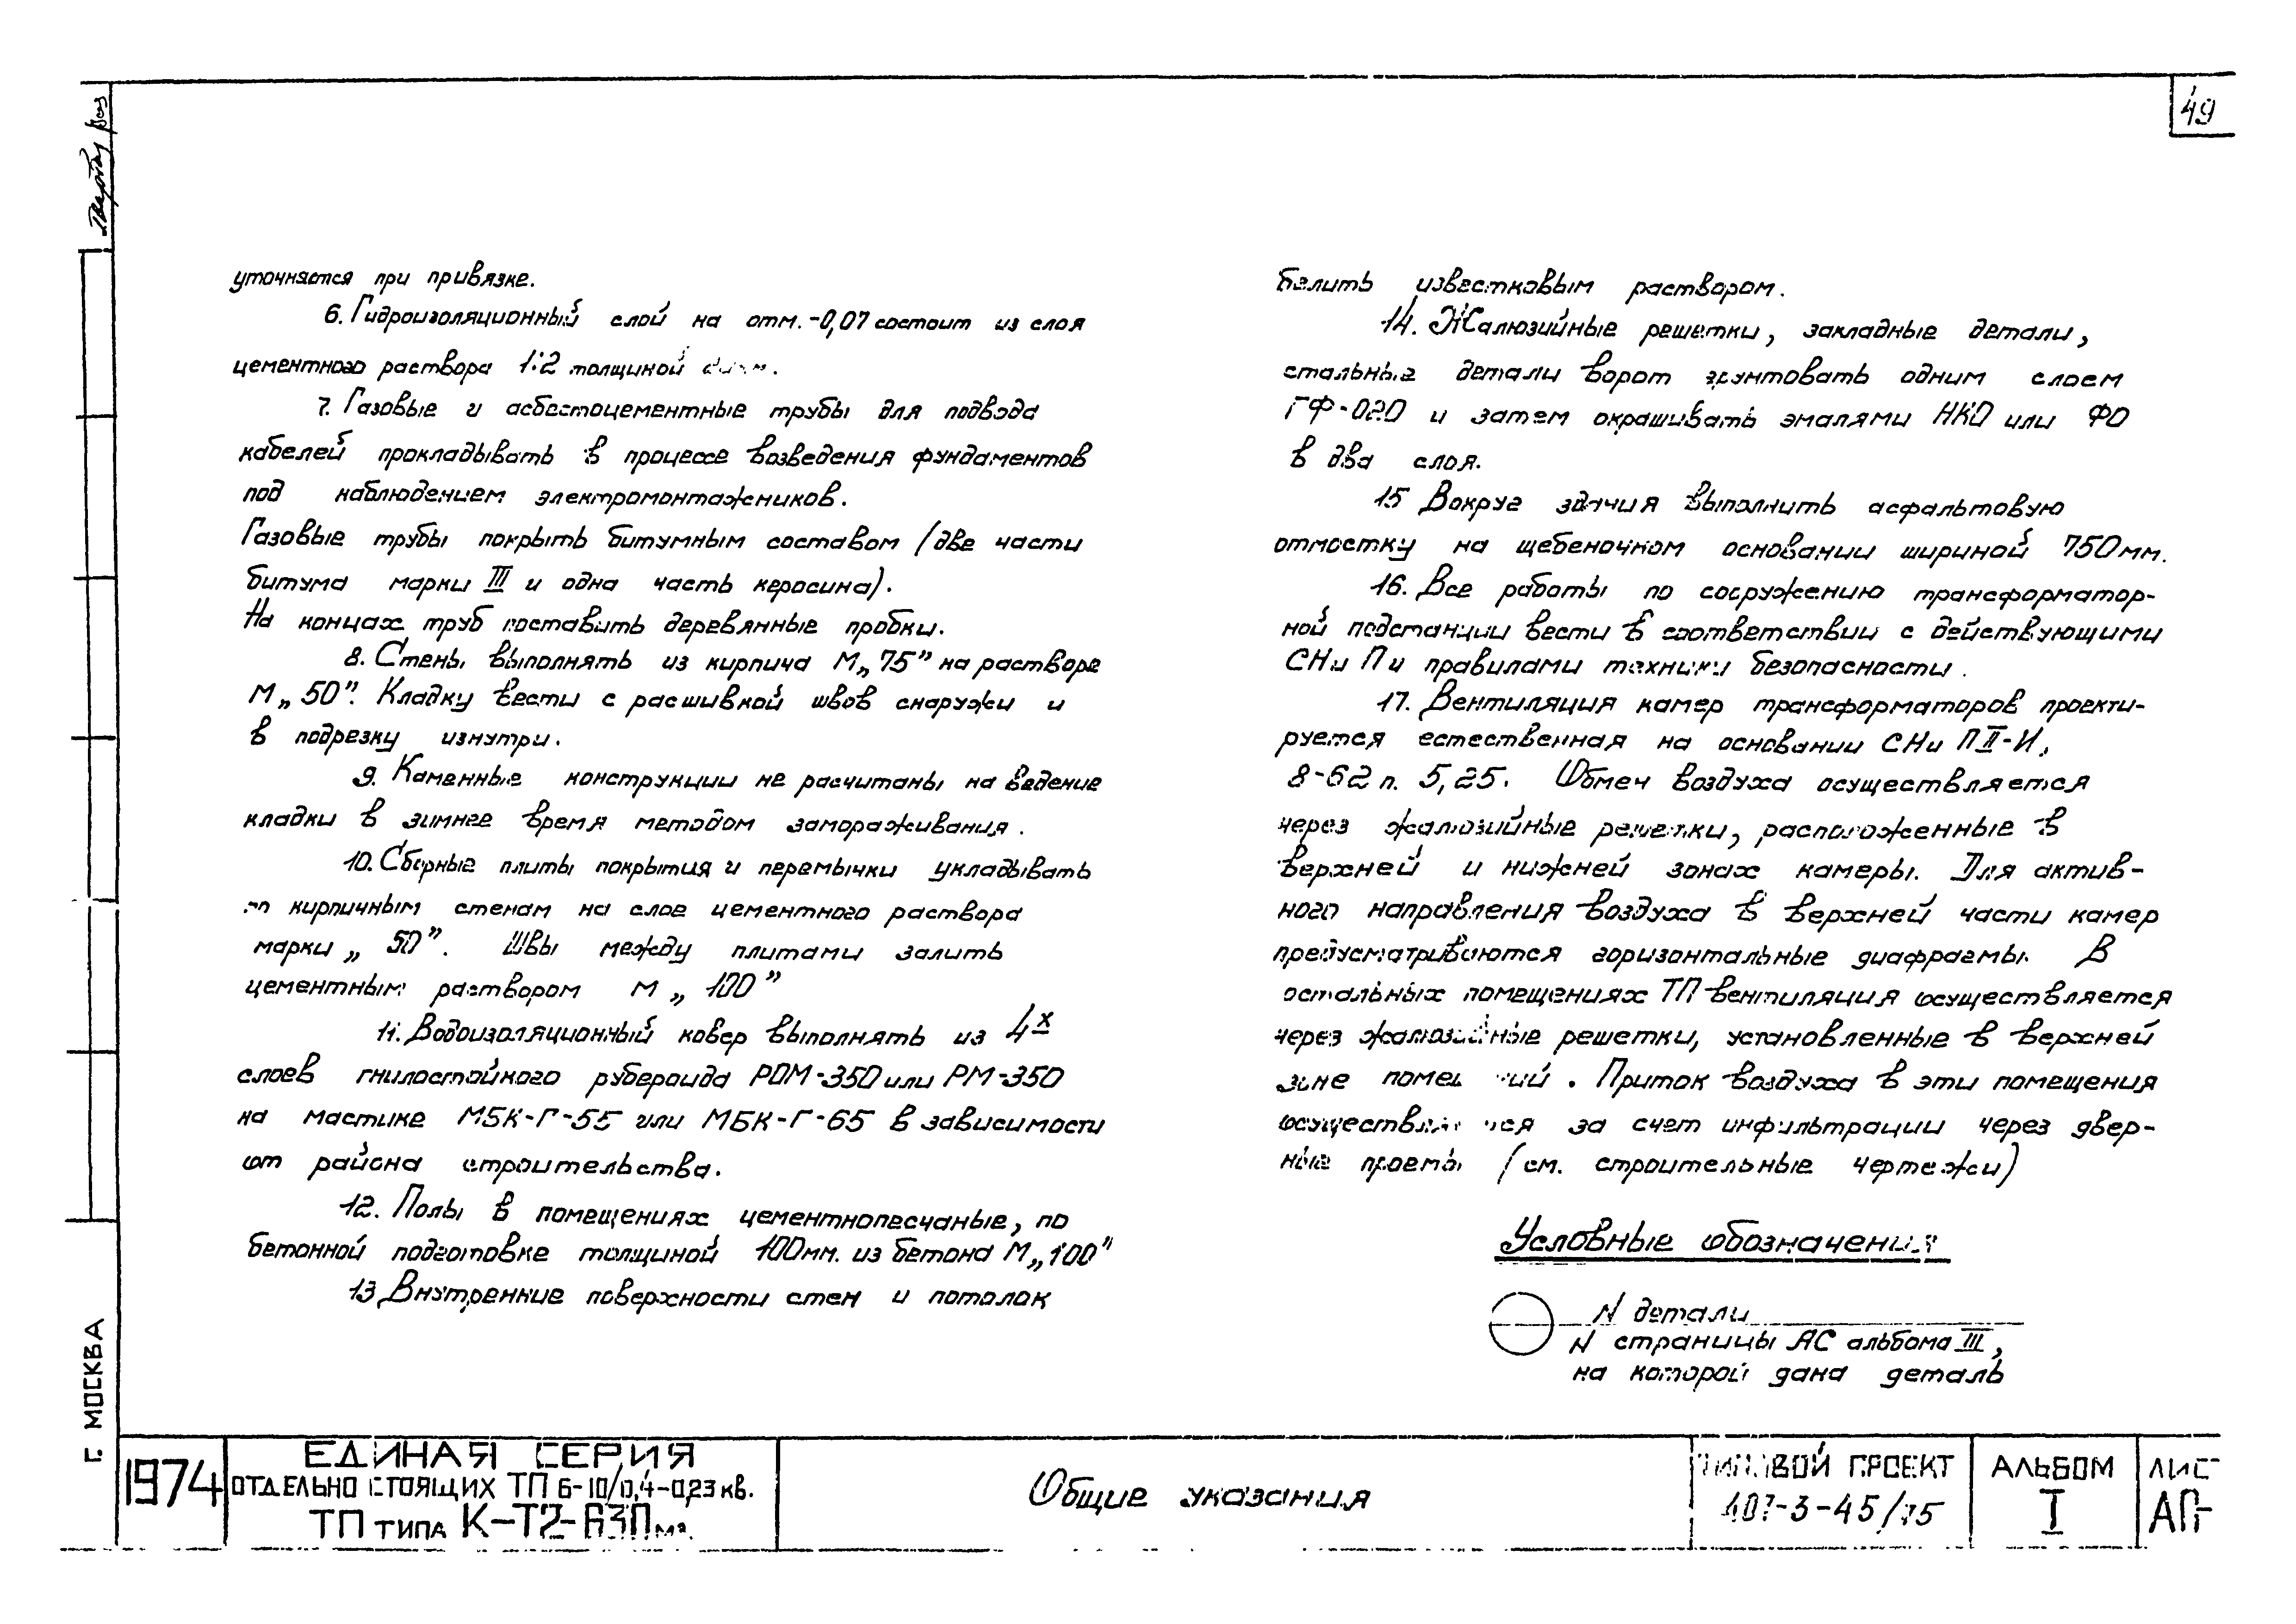 49
уточняется при привязке.
6. Гидроизоляционный слой на отм. -0,07 состоит из слоя
цементного раствора 1:2 толщиной
7. Газовые и асбестоцементные трубы для подвода
кабелей прокладывать в процессе возведения фундаментов
под наблюдением электромонтажников.
Газовые трубы покрыть битумным составом (две части
битума марки III и одна часть керосина).
На концах труб поставить деревянные пробки.
8. Стены выполнять из кирпича М„75” на растворе
М„50”. Кладку вести с расшивкой швов снаружи и
в подрезку изнутри.
9. Каменные конструкции не расчитаны на ведение
кладки в зимнее время методом замораживания.
10. Сборные плиты покрытия и перемычки укладывать
по кирпичным стенам на слое цементного раствора
марки „50”. Швы между плитами залить
цементным раствором М„100”
11. Водоизоляционный ковер выполнять из 4х
слоев гнилостойкого рубероида РОМ-350 или РМ-350
на мастике МБК-Г-55 или МБК-Г-65 в зависимости
от района строительства.
12. Полы в помещениях цементнопесчаные, по
бетонной подготовке толщиной 100мм. из бетона М„100”
13 Внутренние поверхности стен и потолок
белить известковым раствором.
14. Жалюзийные решетки, закладные детали,
стальные детали ворот грунтовать одним слоем
ГФ-020 и затем окрашивать эмалями НКО или ФО
в два слоя.
15 Вокруг здания выполнить асфальтовую
отмостку на щебеночном основании шириной 750мм.
16. Все работы по сооружению трансформатор-
ной подстанции вести в соответствии с действующими
СНиП и правилами техники безопасности.
17. Вентиляция камер трансформаторов проекти-
руется естественная на основании СНиП II-И,
8-62 п. 5,25. Обмен воздуха осуществляется
через жалюзийные решетки, расположенные в
верхней и нижней зонах камеры. Для актив-
ного направления воздуха в верхней части камер
предусматриваются горизонтальные диафрагмы. В
остальных помещениях ТП вентиляция осуществляется
через жалюзийные решетки, установленные в верхней
зоне помещений. Приток воздуха в эти помещения
осуществляется за счет инфильтрации через двер-
ные проемы (см. строительные чертежи)
Условные обозначения
N детали
N страницы АС альбома III,
на которой дана деталь
Г. МОСКВА
1974
ЕДИНАЯ СЕРИЯ
ОТДЕЛЬНО СТОЯЩИХ ТП 6-10/0,4-0,23 кв.
ТП ТИПА К-Т2-630
Общие указания
ТИПОВОЙ ПРОЕКТ
407-3-45/75
АЛЬБОМ
I
ЛИС